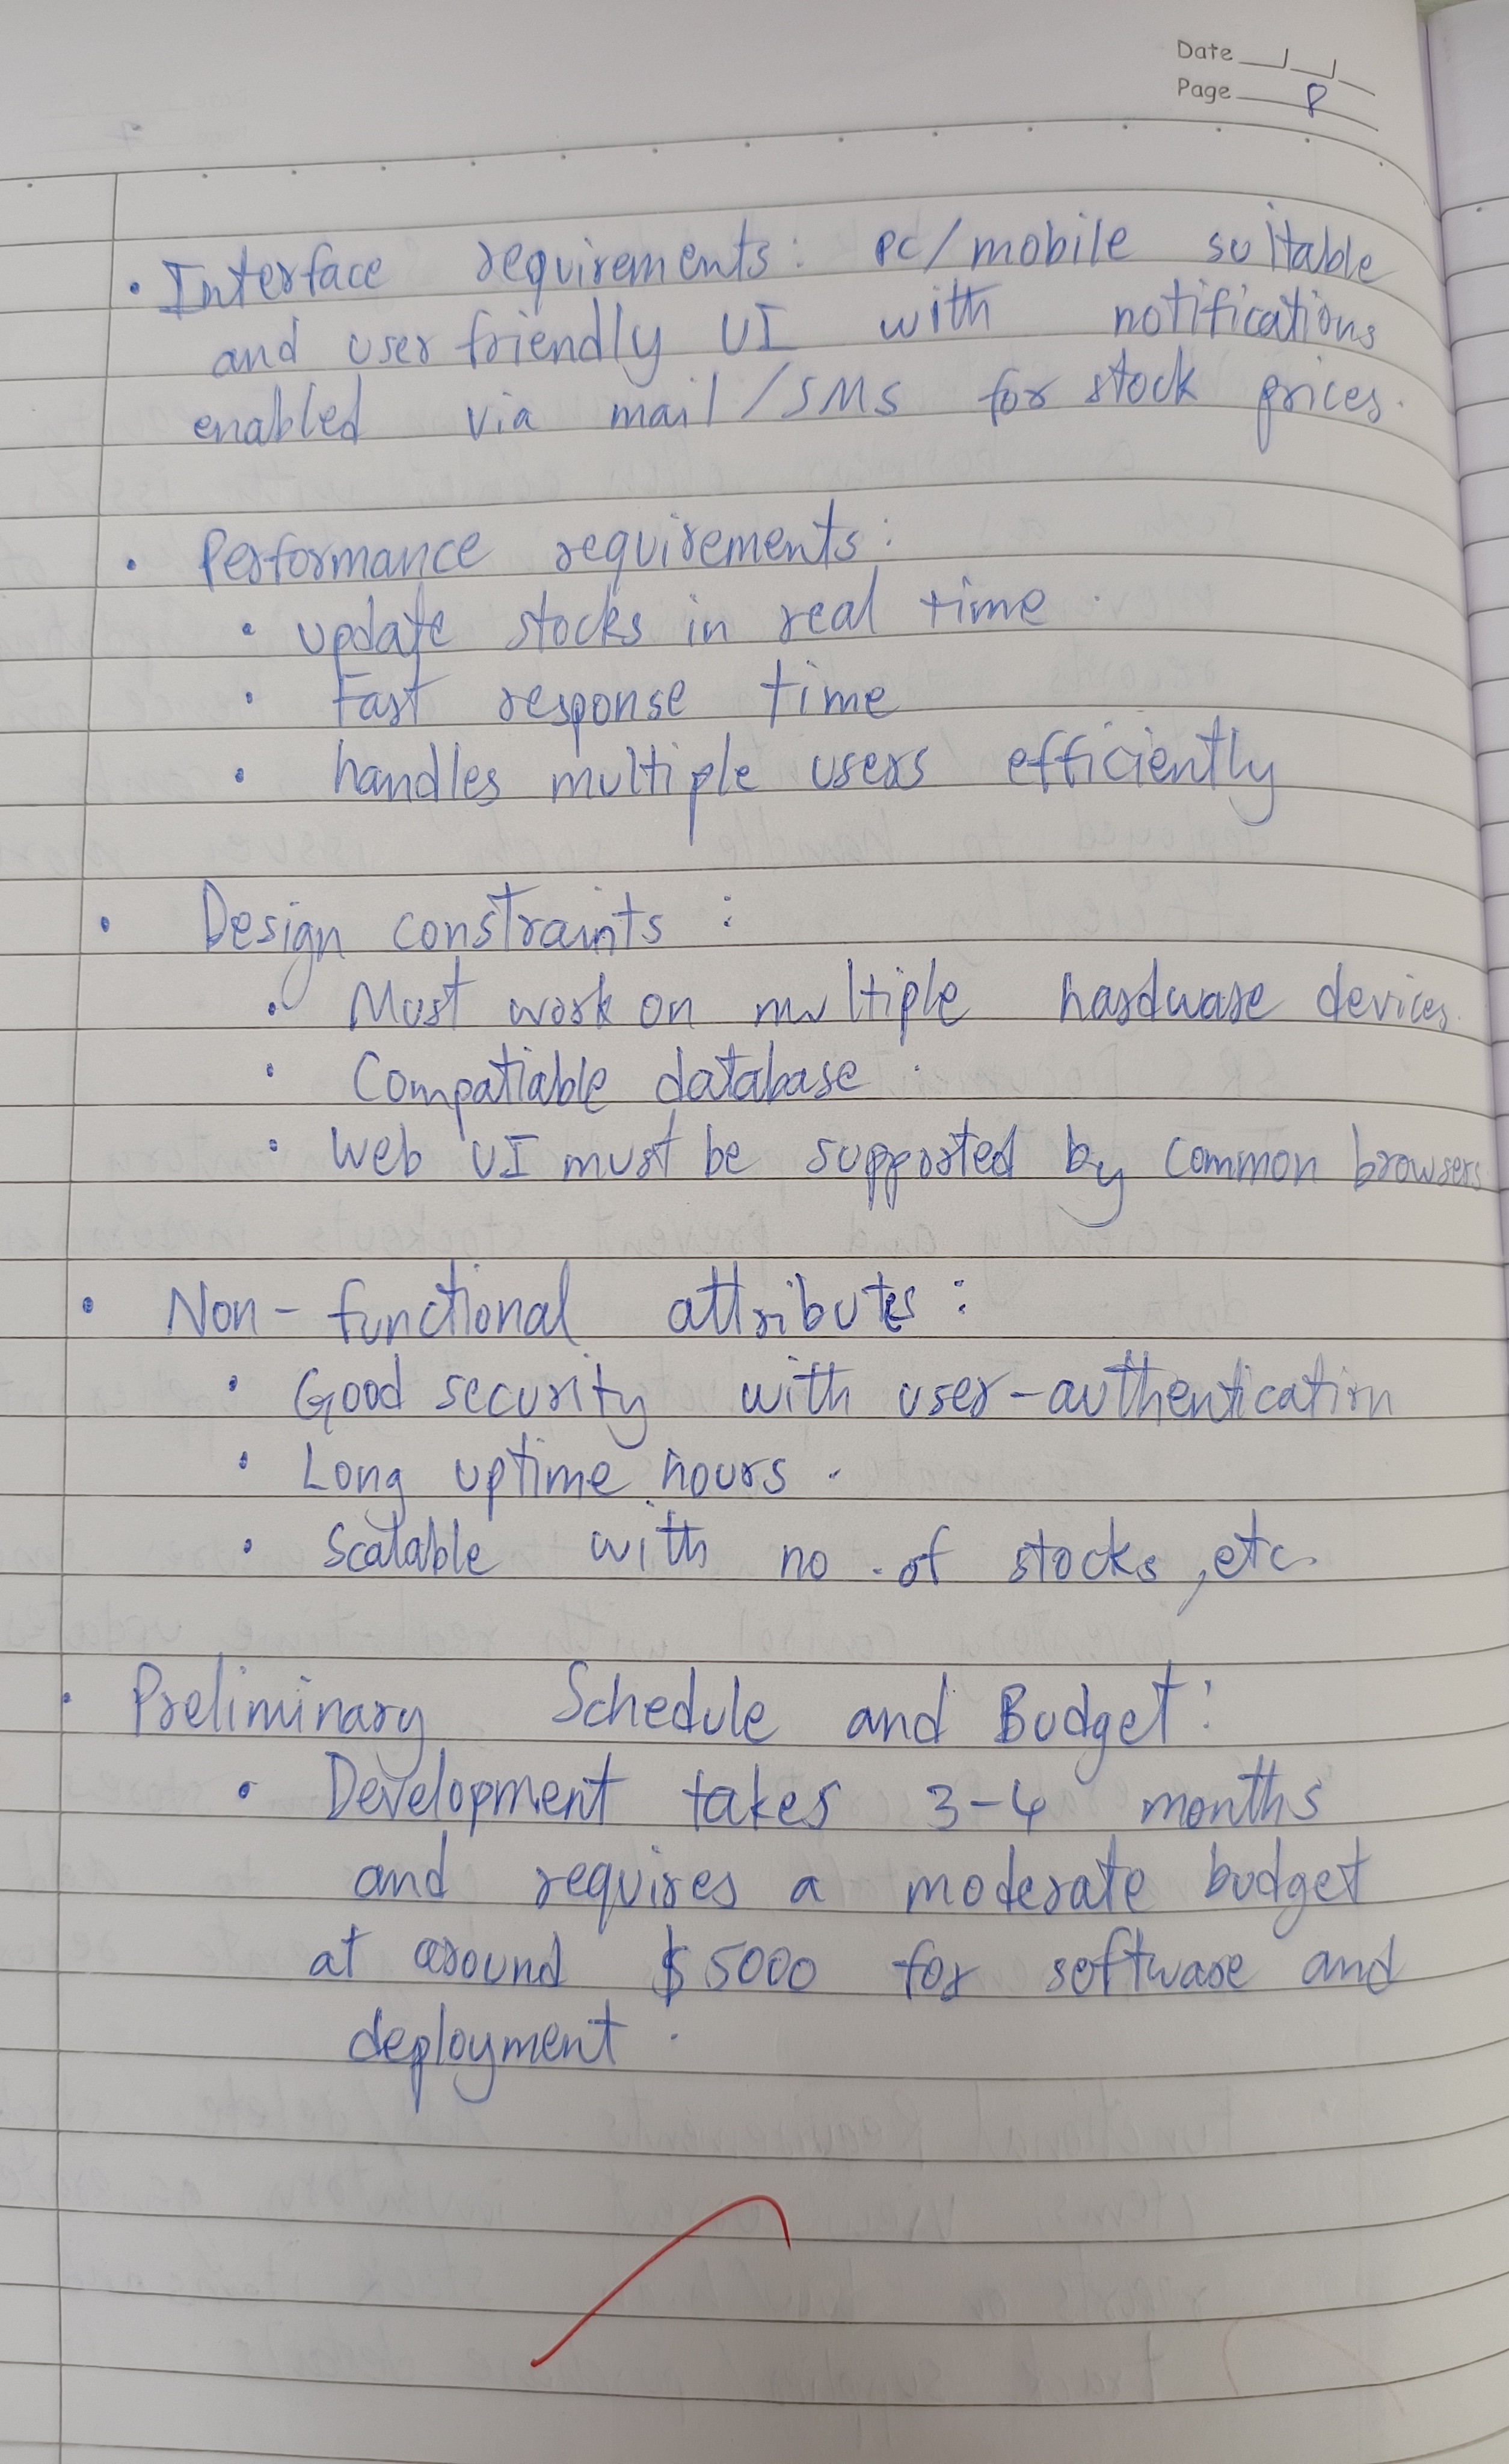 Date
Page 8
• Interface requirements: pc/mobile suitable
and user friendly UI with notifications
enabled via mail/SMS for stock prices.
• Performance requirements:
• update stocks in real time.
• Fast response time
• handles multiple users efficiently
• Design constraints:
• Must work on multiple hardware devices.
• Compatiable database.
• Web UI must be supported by common browsers
• Non-functional attributes:
• Good security with user-authentication
• Long uptime hours.
• Scalable with no. of stocks, etc.
• Preliminary Schedule and Budget:
• Development takes 3-4 months
and requires a moderate budget
at around $5000 for software and
deployment.